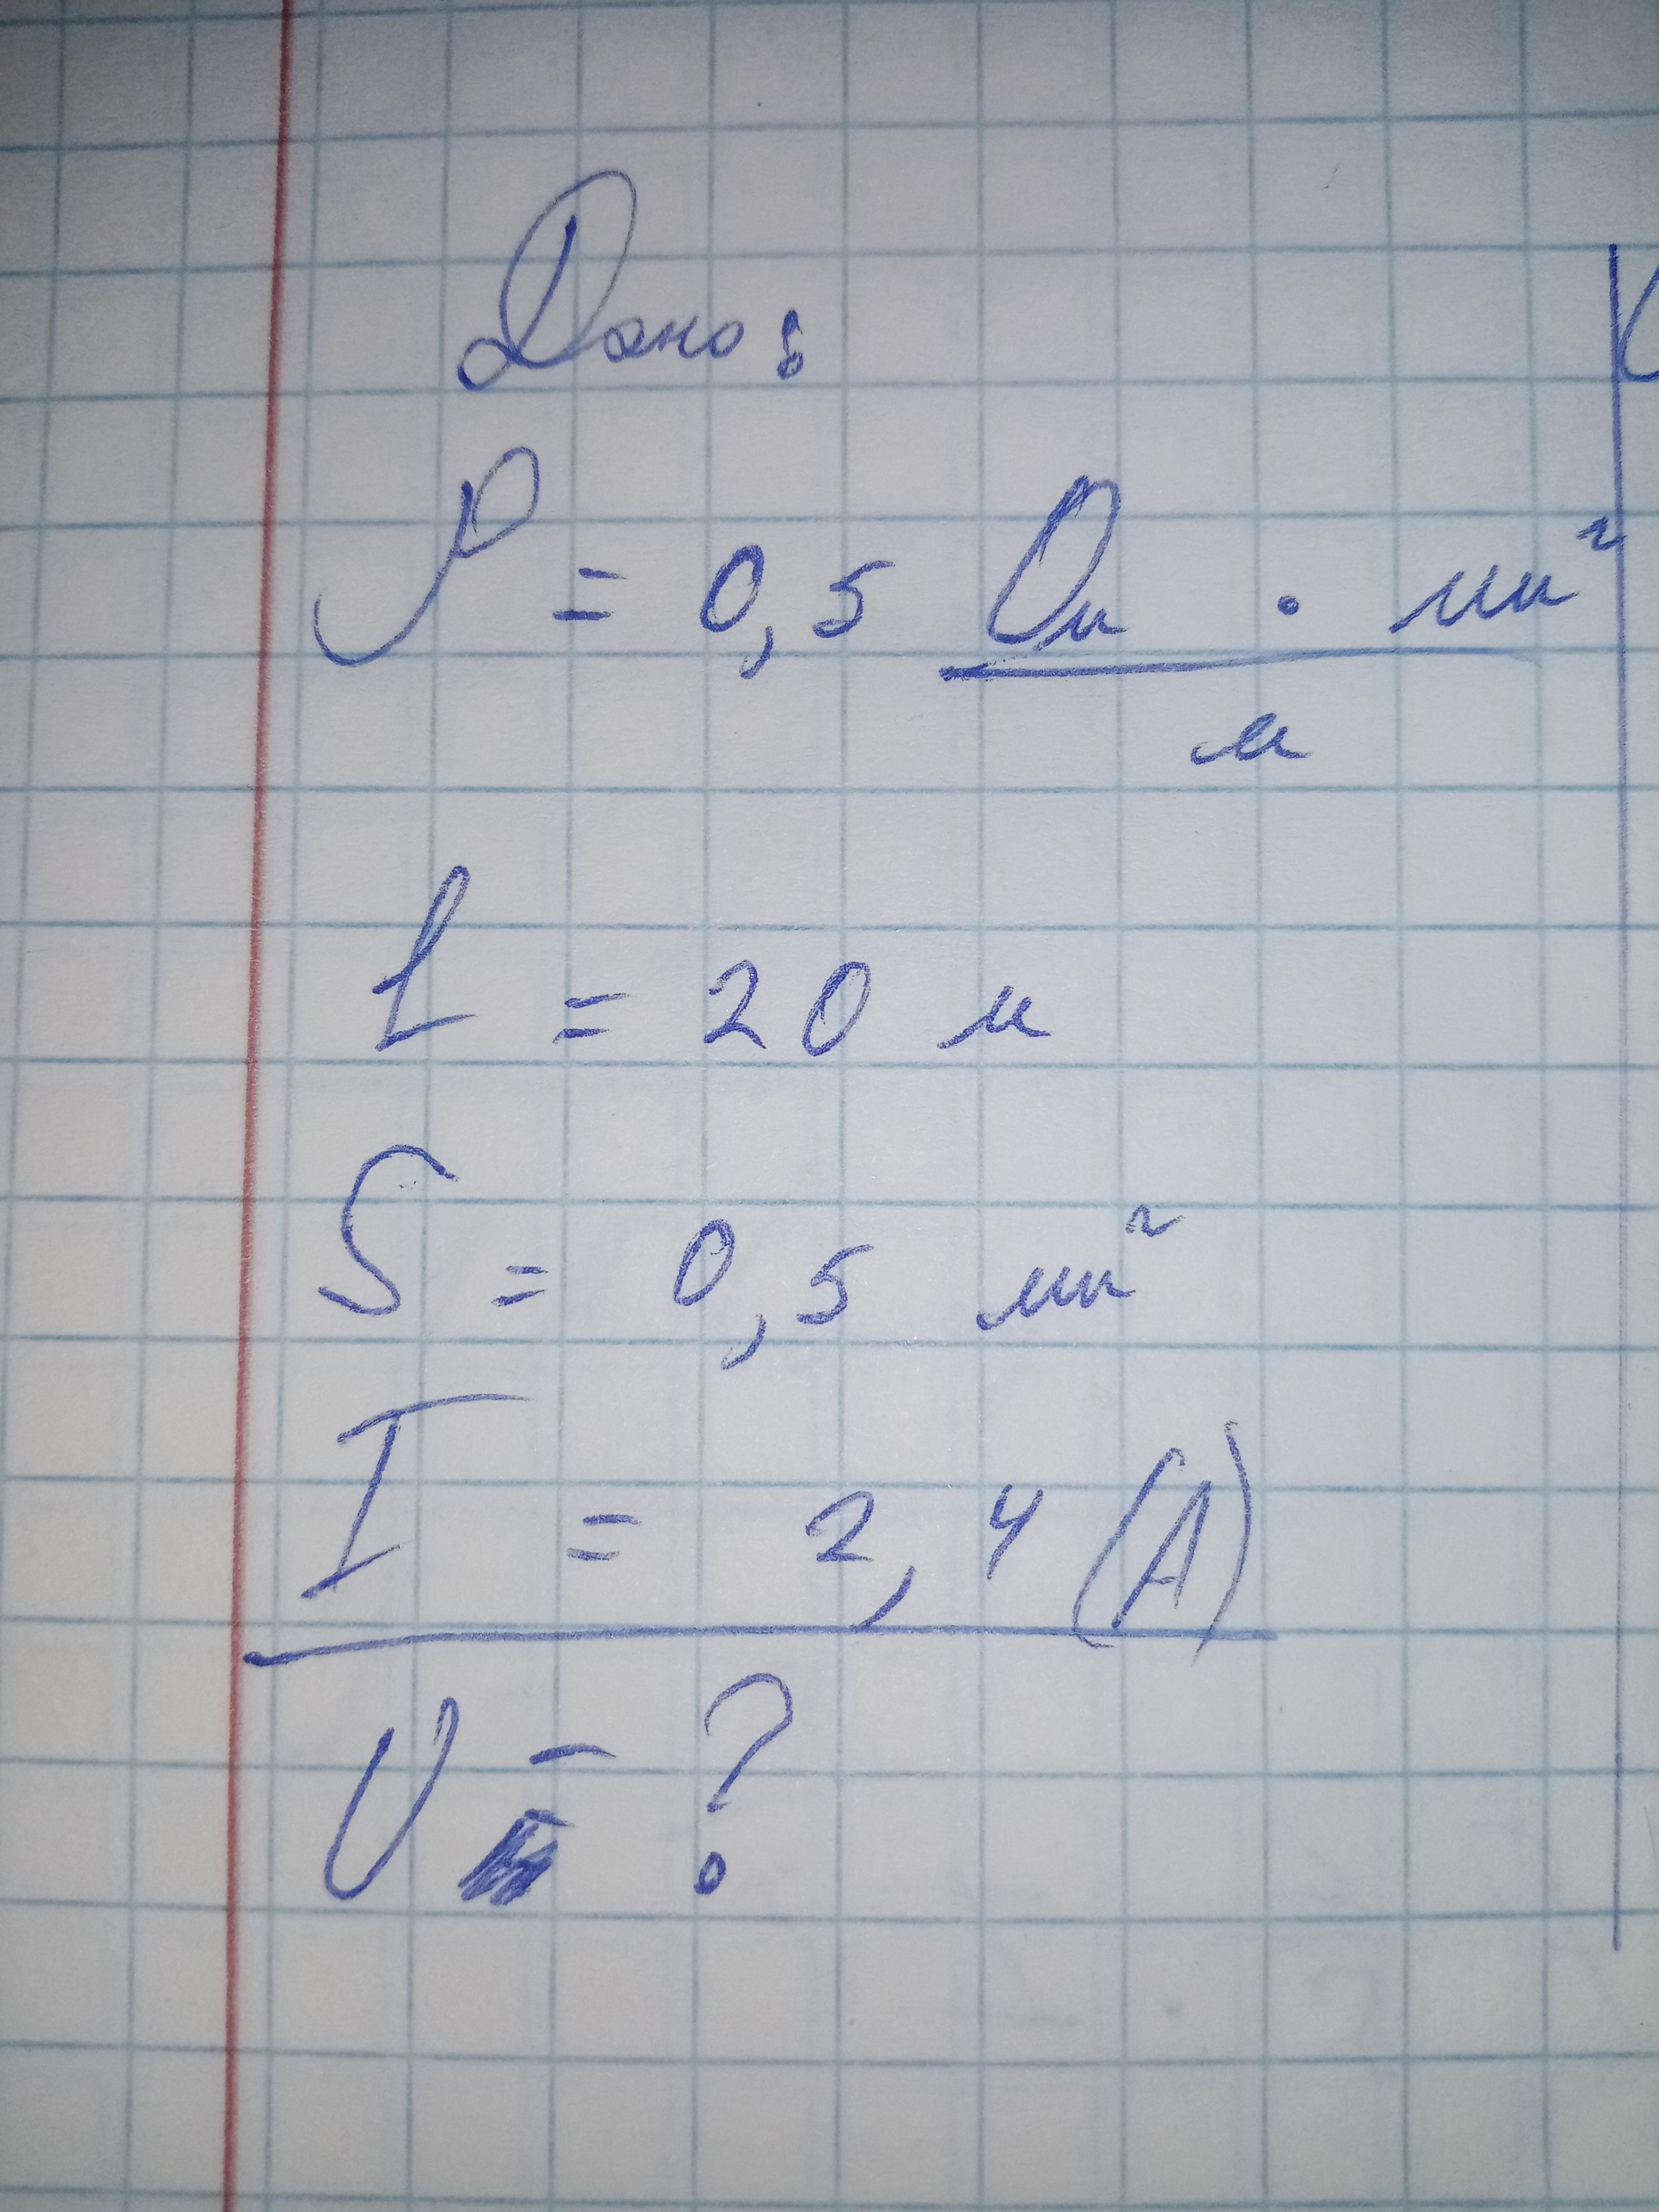 Дано:
ρ = 0,5 Ом · мм²
м
L = 20 м
S = 0,5 мм²
I = 2,4 (А)
U - ?